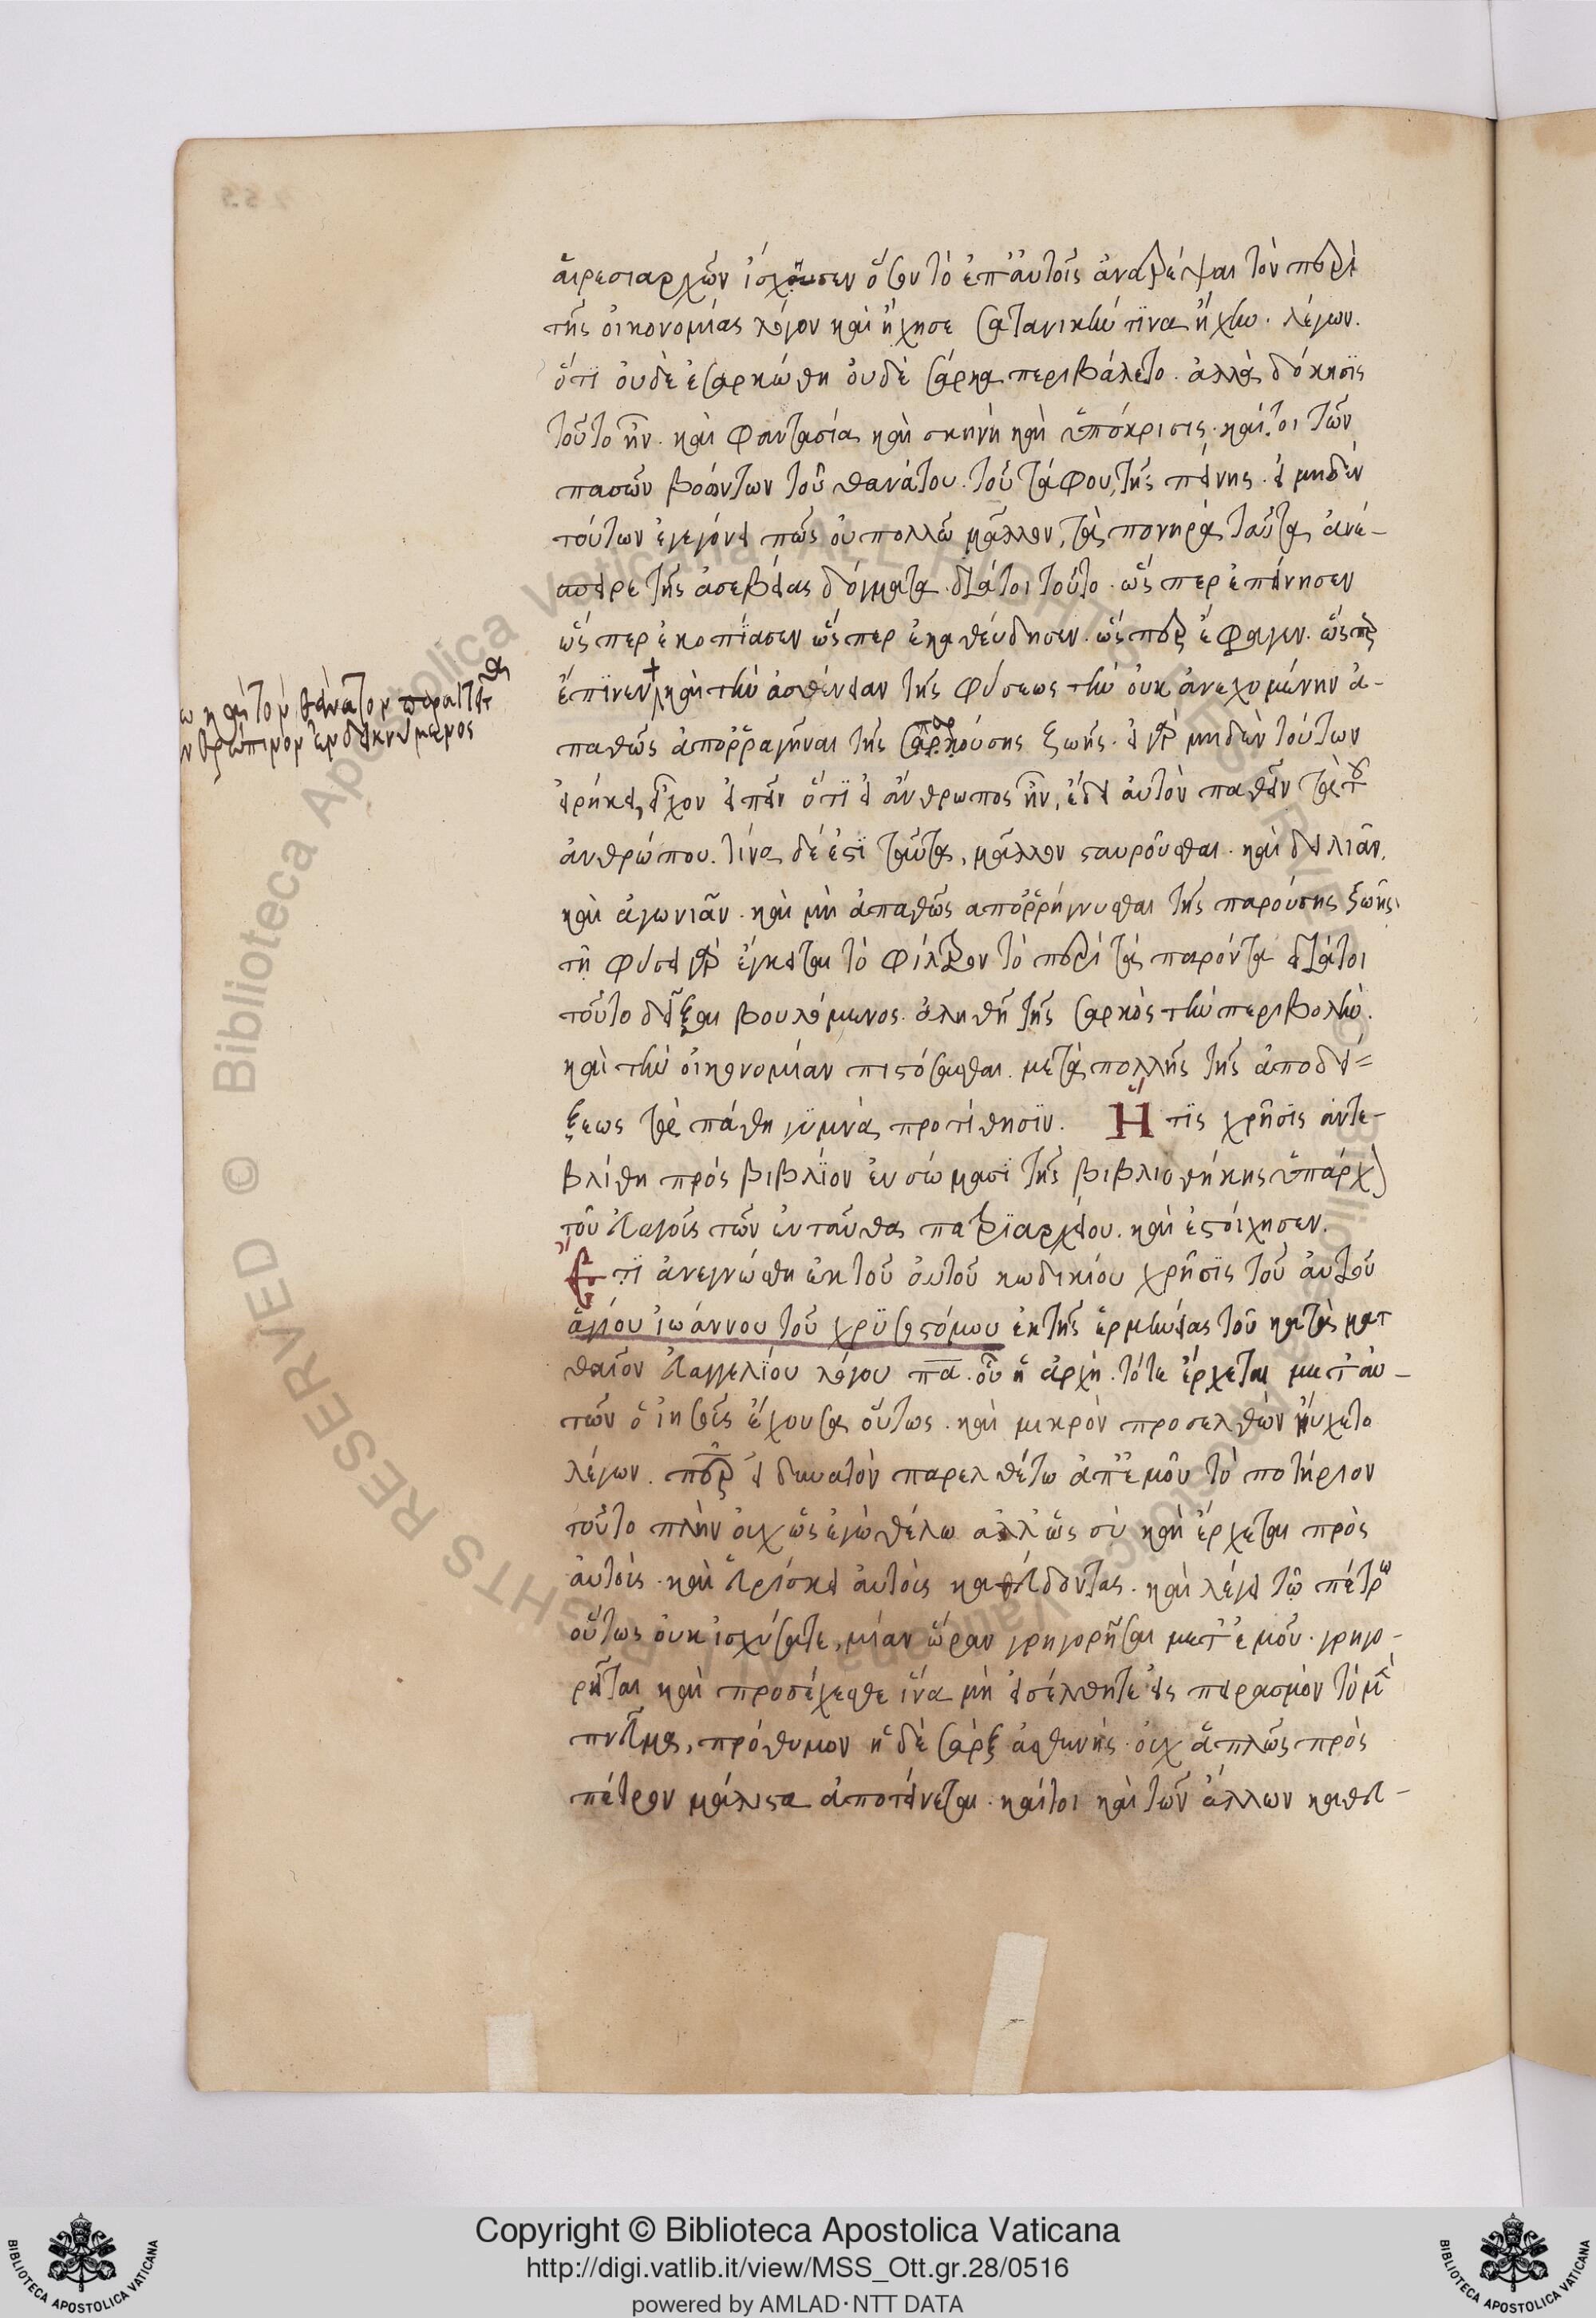 αἱρεσιαρχῶν ἴσχυσεν ὅσον τὸ ἐπ' αὐτοῖς ἀνατρέψαι τὸν περὶ
τῆς οἰκονομίας λόγον καὶ ἤχησε σατανικήν τινα ἠχήν. λέγων.
ὅτι οὐδὲ ἐσαρκώθη οὐδὲ σάρκα περιβάλετο. ἀλλὰ δόκησϊς
τοῦτο ἦν. καὶ φαντασία καὶ σκηνὴ καὶ ὑπόκρισις. καίτοι τῶν
πασῶν βοώντων τοῦ θανάτου. τοῦ τάφου, τῆς πείνης. εἰ μηδὲν
τούτων ἐγεγόνει πῶς οὐ πολλῶ μᾶλλον, τὰ πονηρὰ ταῦτα ἀνέ-
σπειρε τῆς ἀσεβείας δόγματα. διάτοι τοῦτο. ὥσπερ ἐπείνησεν
ὥσπερ ἐκοπΐασεν ὥσπερ ἐκαθεύδησεν. ὥσπερ ἔφαγεν. ὥσπερ
ἔπϊνεν καὶ τὴν ἀσθένειαν τῆς φύσεως τὴν οὐκ ἀνεχομένην ἀ-
παθῶς ἀπορραγῆναι τῆς παρούσης ζωῆς. εἰ γὰρ μηδὲν τούτων
εἰρήκει, εἶχον εἰπεῖν ὅτϊ εἰ ἄνθρωπος ἦν, ἔδει αὐτὸν παθεῖν τὰ τοῦ
ἀνθρώπου. τίνα δέ ἐστϊ ταῦτα, μᾶλλον σταυροῦσθαι. καὶ δειλιᾶν.
καὶ ἀγωνιᾶν. καὶ μὴ ἀπαθῶς απορρήγνυσθαι τῆς παρούσης ζωῆς.
τῆ φύσει γὰρ ἔγκειται τὸ φίλτρον τὸ περὶ τὰ παρόντα διάτοι
τοῦτο δεῖξαι βουλόμενος. ἀληθῆ τῆς σαρκὸς τὴν περιβολήν.
καὶ τὴν οἰκονομίαν πιστόσασθαι. μετὰ πολλῆς τῆς ἀποδεί=
ξεως τὰ πάθη γϋμνὰ προτίθησϊν. Ἥ τϊς χρῆσϊς ἀντε-
βλίθη πρὸς βιβλΐον ἐν σώμασϊ τῆς βιβλιοθήκης ὑπάρχ)
τοῦ εὐαγοῦς τῶν ἐνταῦθα πατρϊαρχείου. καὶ ἐστοίχησεν.
Ἔτϊ ἀνεγνώσθη ἐκ τοῦ αὐτοῦ κωδικίου χρῆσϊς τοῦ αὐτοῦ
ἁγίου ἰωάννου τοῦ χρϋσοστόμου ἐκ τῆς ἑρμηνείας τοῦ κατὰ ματ
θαῖον εὐαγγελΐου λόγου πα. οὗ ἡ ἀρχὴ. τότε ἔρχεται μετ' αυ-
τῶν ὁ ἰησοῦς ἔχουσα οὕτως. καὶ μικρὸν προσελθὼν ηὔχετο
λέγων. περ εἰ δυνατὸν παρελθέτω ἀπ' ἐμοῦ τὸ ποτήριον
τοῦτο πλὴν οὐχ ὡς ἐγὼ θέλω αλλ' ὡς σὺ καὶ ἔρχεται πρὸς
αὐτοὺς. καὶ εὑρίσκει αὐτοὺς καθεύδοντας. καὶ λέγει τῶ πέτρω
οὕτως οὐκ ἰσχύσατε, μίαν ὥραν γρηγορῆσαι μετ' ἐμοῦ. γρηγο-
ρεῖται καὶ προσέχεσθε ἵνα μὴ εἰσέλθητε εἰς πειρασμόν τὸ μὲν
πνεῦμα, πρόθυμον ἡ δὲ σὰρξ ἀσθενής. οὐχ ἁπλῶς πρὸς
πέτρον μάλιστα ἀποτείνεται. καίτοι καὶ τῶν ἄλλων καθευ-
ω καὶ τὸν θάνατον παραιτεῖσθαι
νθρώπινον ἐνδεικνύμενος
© Biblioteca Apostolica Vaticana ALL RIGHTS RESERVED
Copyright © Biblioteca Apostolica Vaticana
http://digi.vatlib.it/view/MSS_Ott.gr.28/0516
powered by AMLAD·NTT DATA
BIBLIOTECA APOSTOLICA VATICANA
BIBLIOTECA APOSTOLICA VATICANA